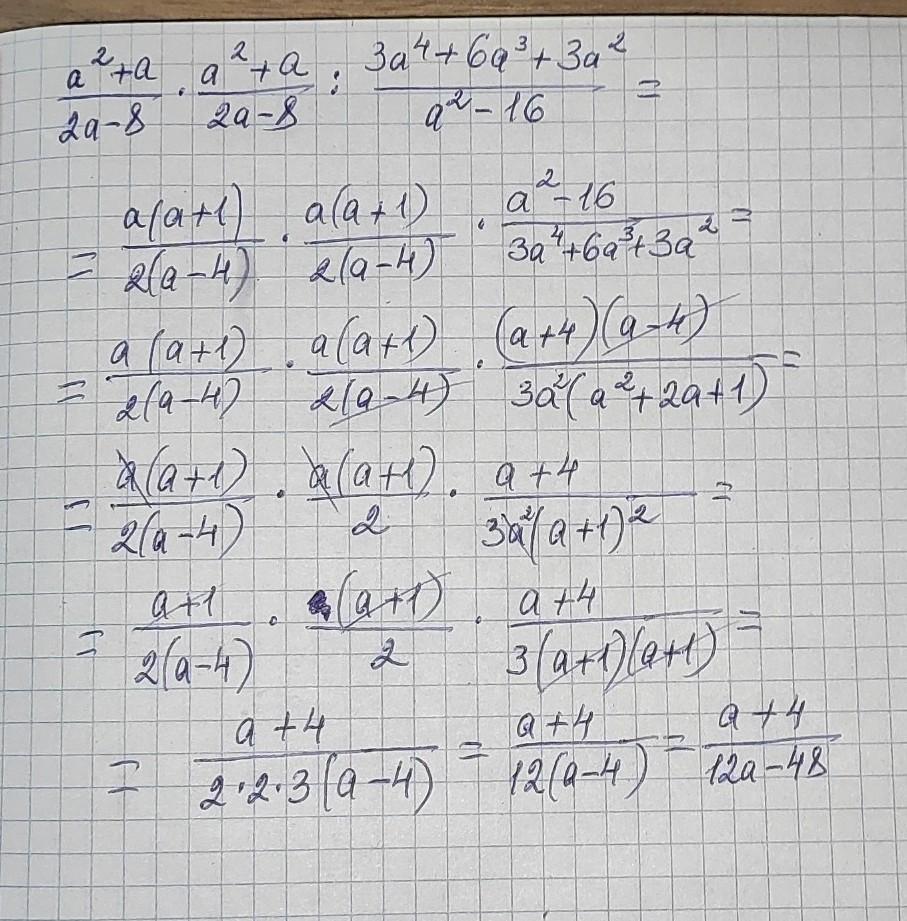 (a²+a)/(2a-8) · (a²+a)/(2a-8) : (3a⁴+6a³+3a²)/(a²-16) =
= a(a+1)/2(a-4) · a(a+1)/2(a-4) · (a²-16)/(3a⁴+6a³+3a²) =
= a(a+1)/2(a-4) · a(a+1)/2(a-4) · (a+4)(a-4)/3a²(a²+2a+1) =
= a(a+1)/2(a-4) · a(a+1)/2 · (a+4)/3a²(a+1)² =
= (a+1)/2(a-4) · (a+1)/2 · (a+4)/3(a+1)(a+1) =
= (a+4)/2·2·3(a-4) = (a+4)/12(a-4) = (a+4)/(12a-48)